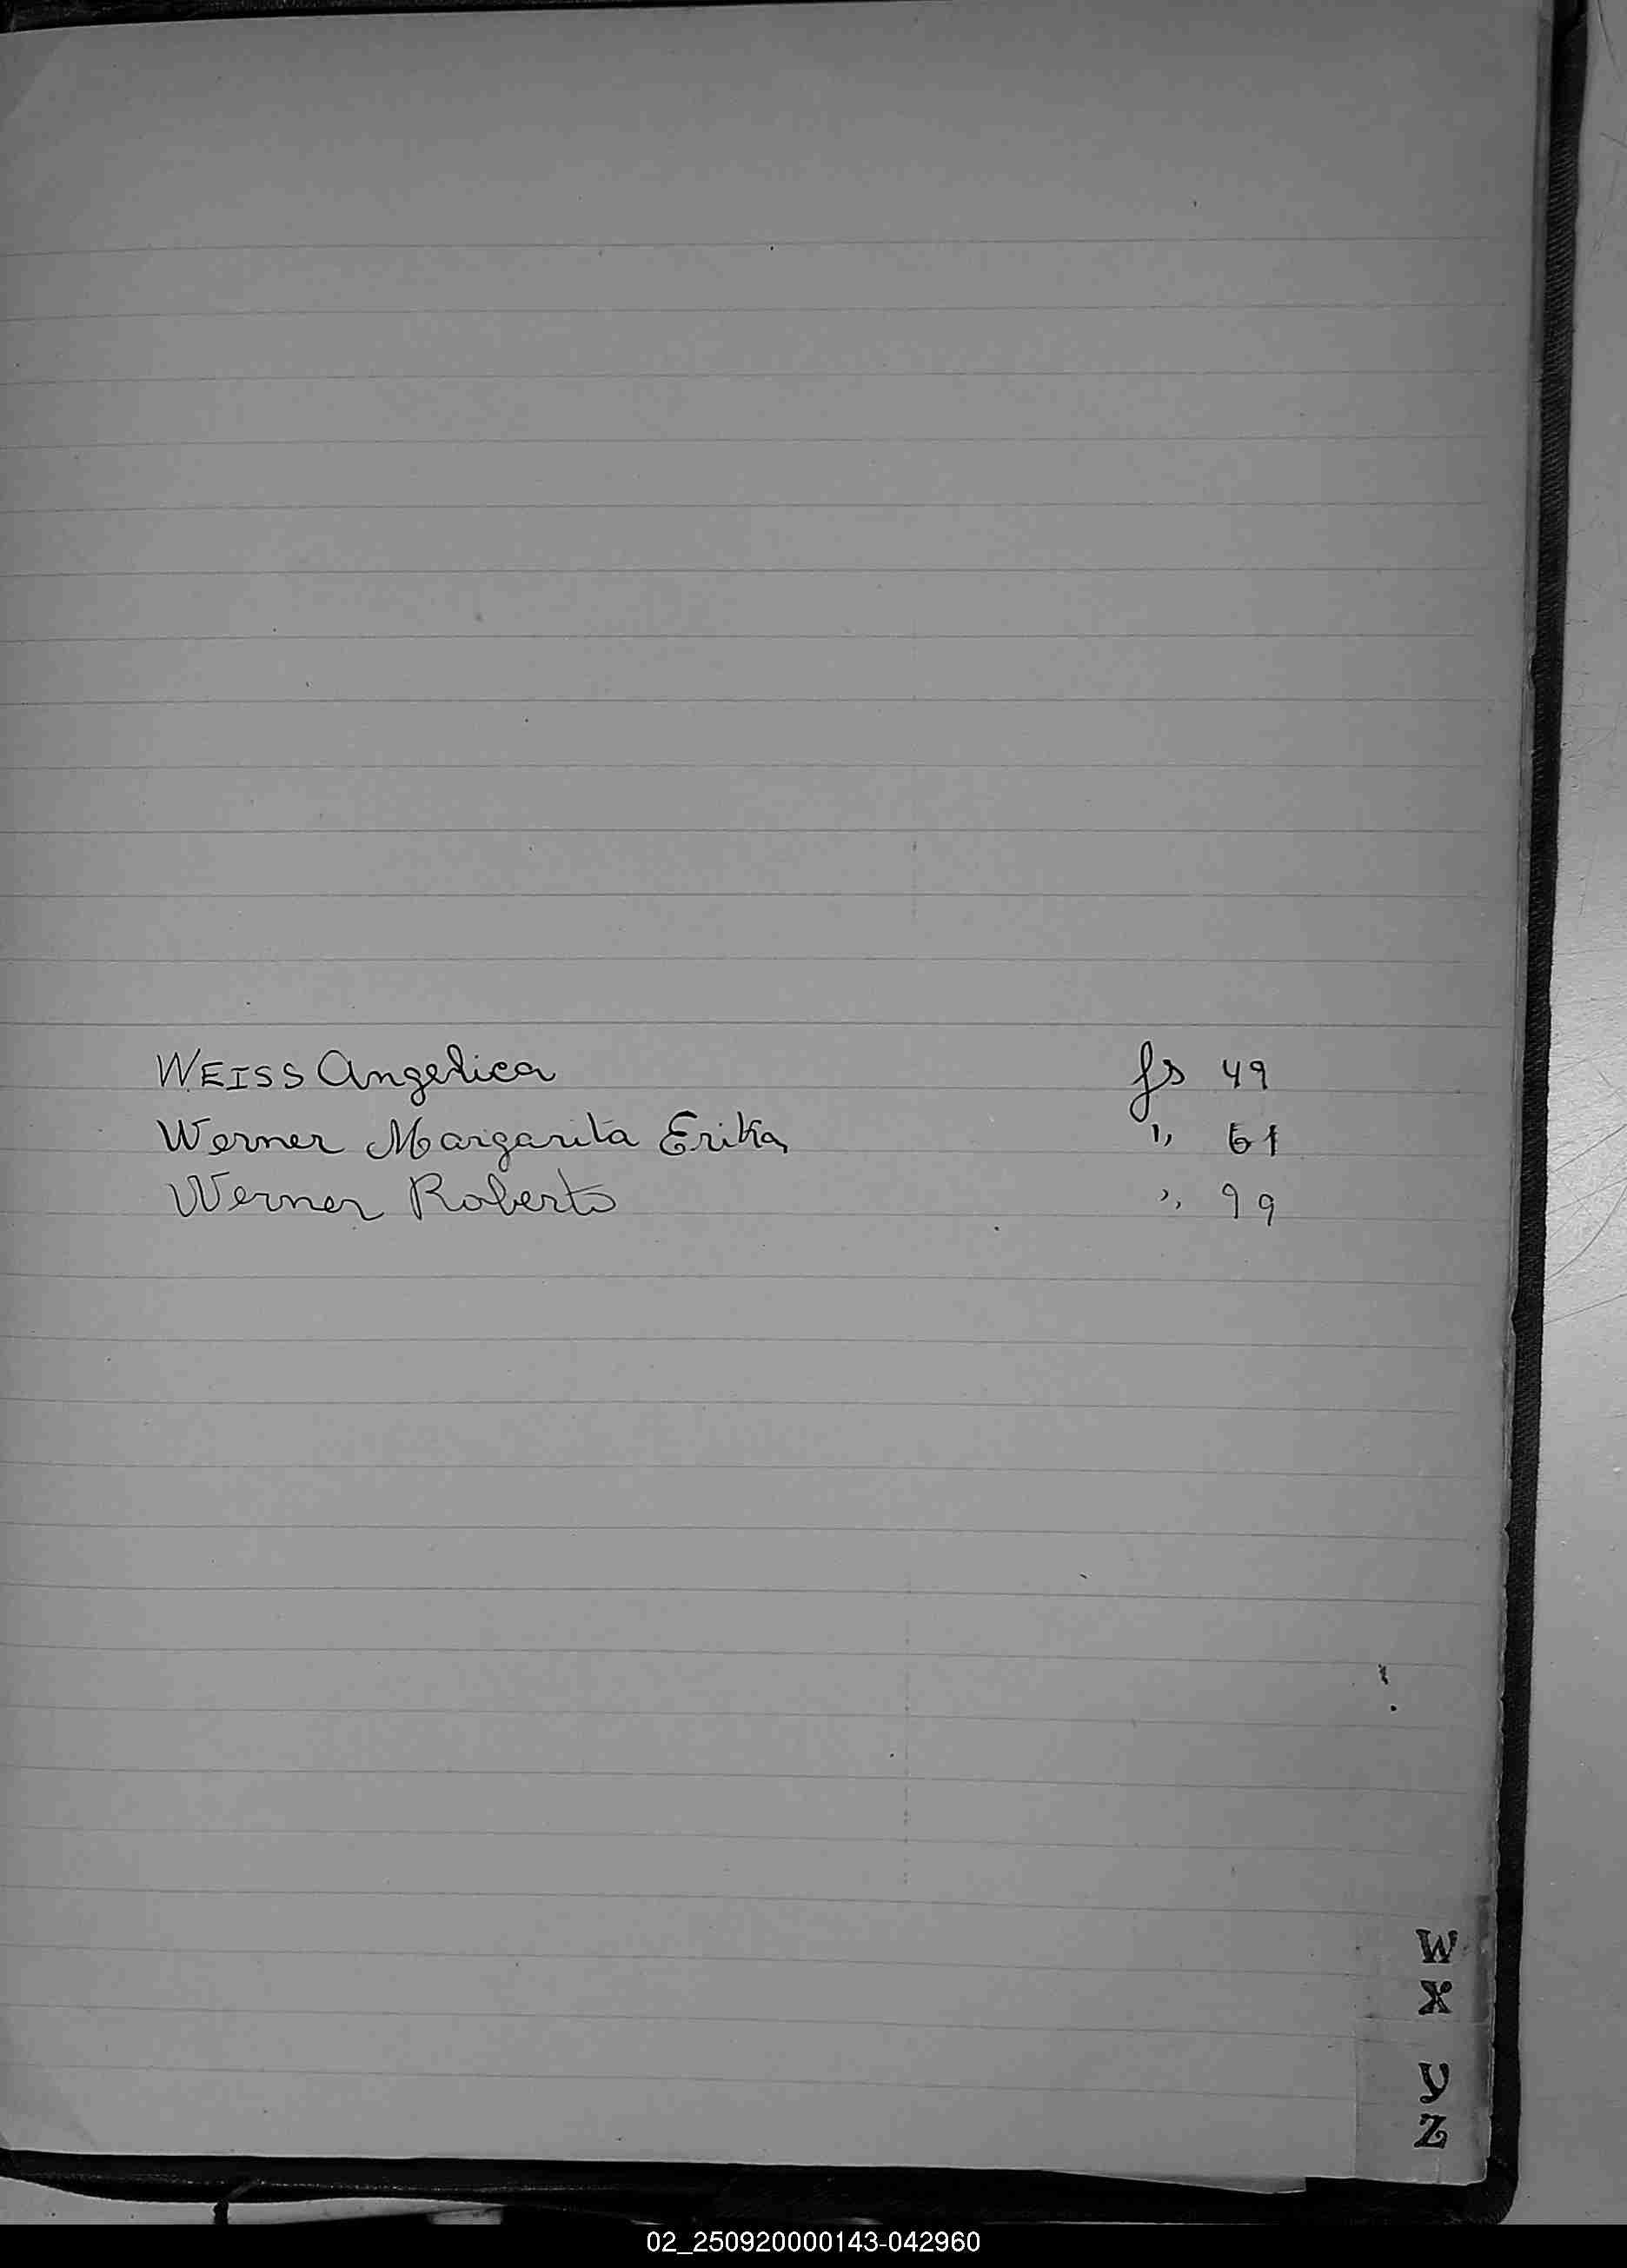 WEISS Angelica fs 49
Werner Margarita Erika " 61
Werner Roberto " 99
W
X
Y
Z
02_250920000143-042960